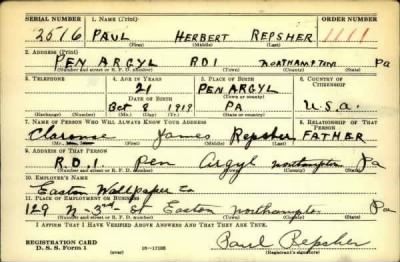 SERIAL NUMBER 1. NAME (Print) ORDER NUMBER
2516 PAUL HERBERT REPSHER 1111
(First) (Middle) (Last)
2. ADDRESS (Print)
PEN ARGYL RD1 NORTHAMPTON Pa
(Number and street or R. F. D. number) (Town) (County) (State)
3. TELEPHONE 4. AGE IN YEARS 5. PLACE OF BIRTH 6. COUNTRY OF CITIZENSHIP
21 PEN ARGYL
(Town or county)
DATE OF BIRTH
Oct 8 1919 PA U.S.A.
(Exchange) (Number) (Mo.) (Day) (Yr.) (State or country)
7. NAME OF PERSON WHO WILL ALWAYS KNOW YOUR ADDRESS 8. RELATIONSHIP OF THAT PERSON
Clarence James Repsher FATHER
(First) (Middle) (Last)
9. ADDRESS OF THAT PERSON
R.D.1. Pen Argyl Northampton Pa
(Number and street or R. F. D. number) (Town) (County) (State)
10. EMPLOYER'S NAME
Easton Wallpaper Co
11. PLACE OF EMPLOYMENT OR BUSINESS
129 N-3rd St Easton Northampton Pa
(Number and street or R. F. D. number) (Town) (County) (State)
I AFFIRM THAT I HAVE VERIFIED ABOVE ANSWERS AND THAT THEY ARE TRUE.
Paul Repsher
REGISTRATION CARD
D. S. S. Form 1 (over) (Registrant's signature)